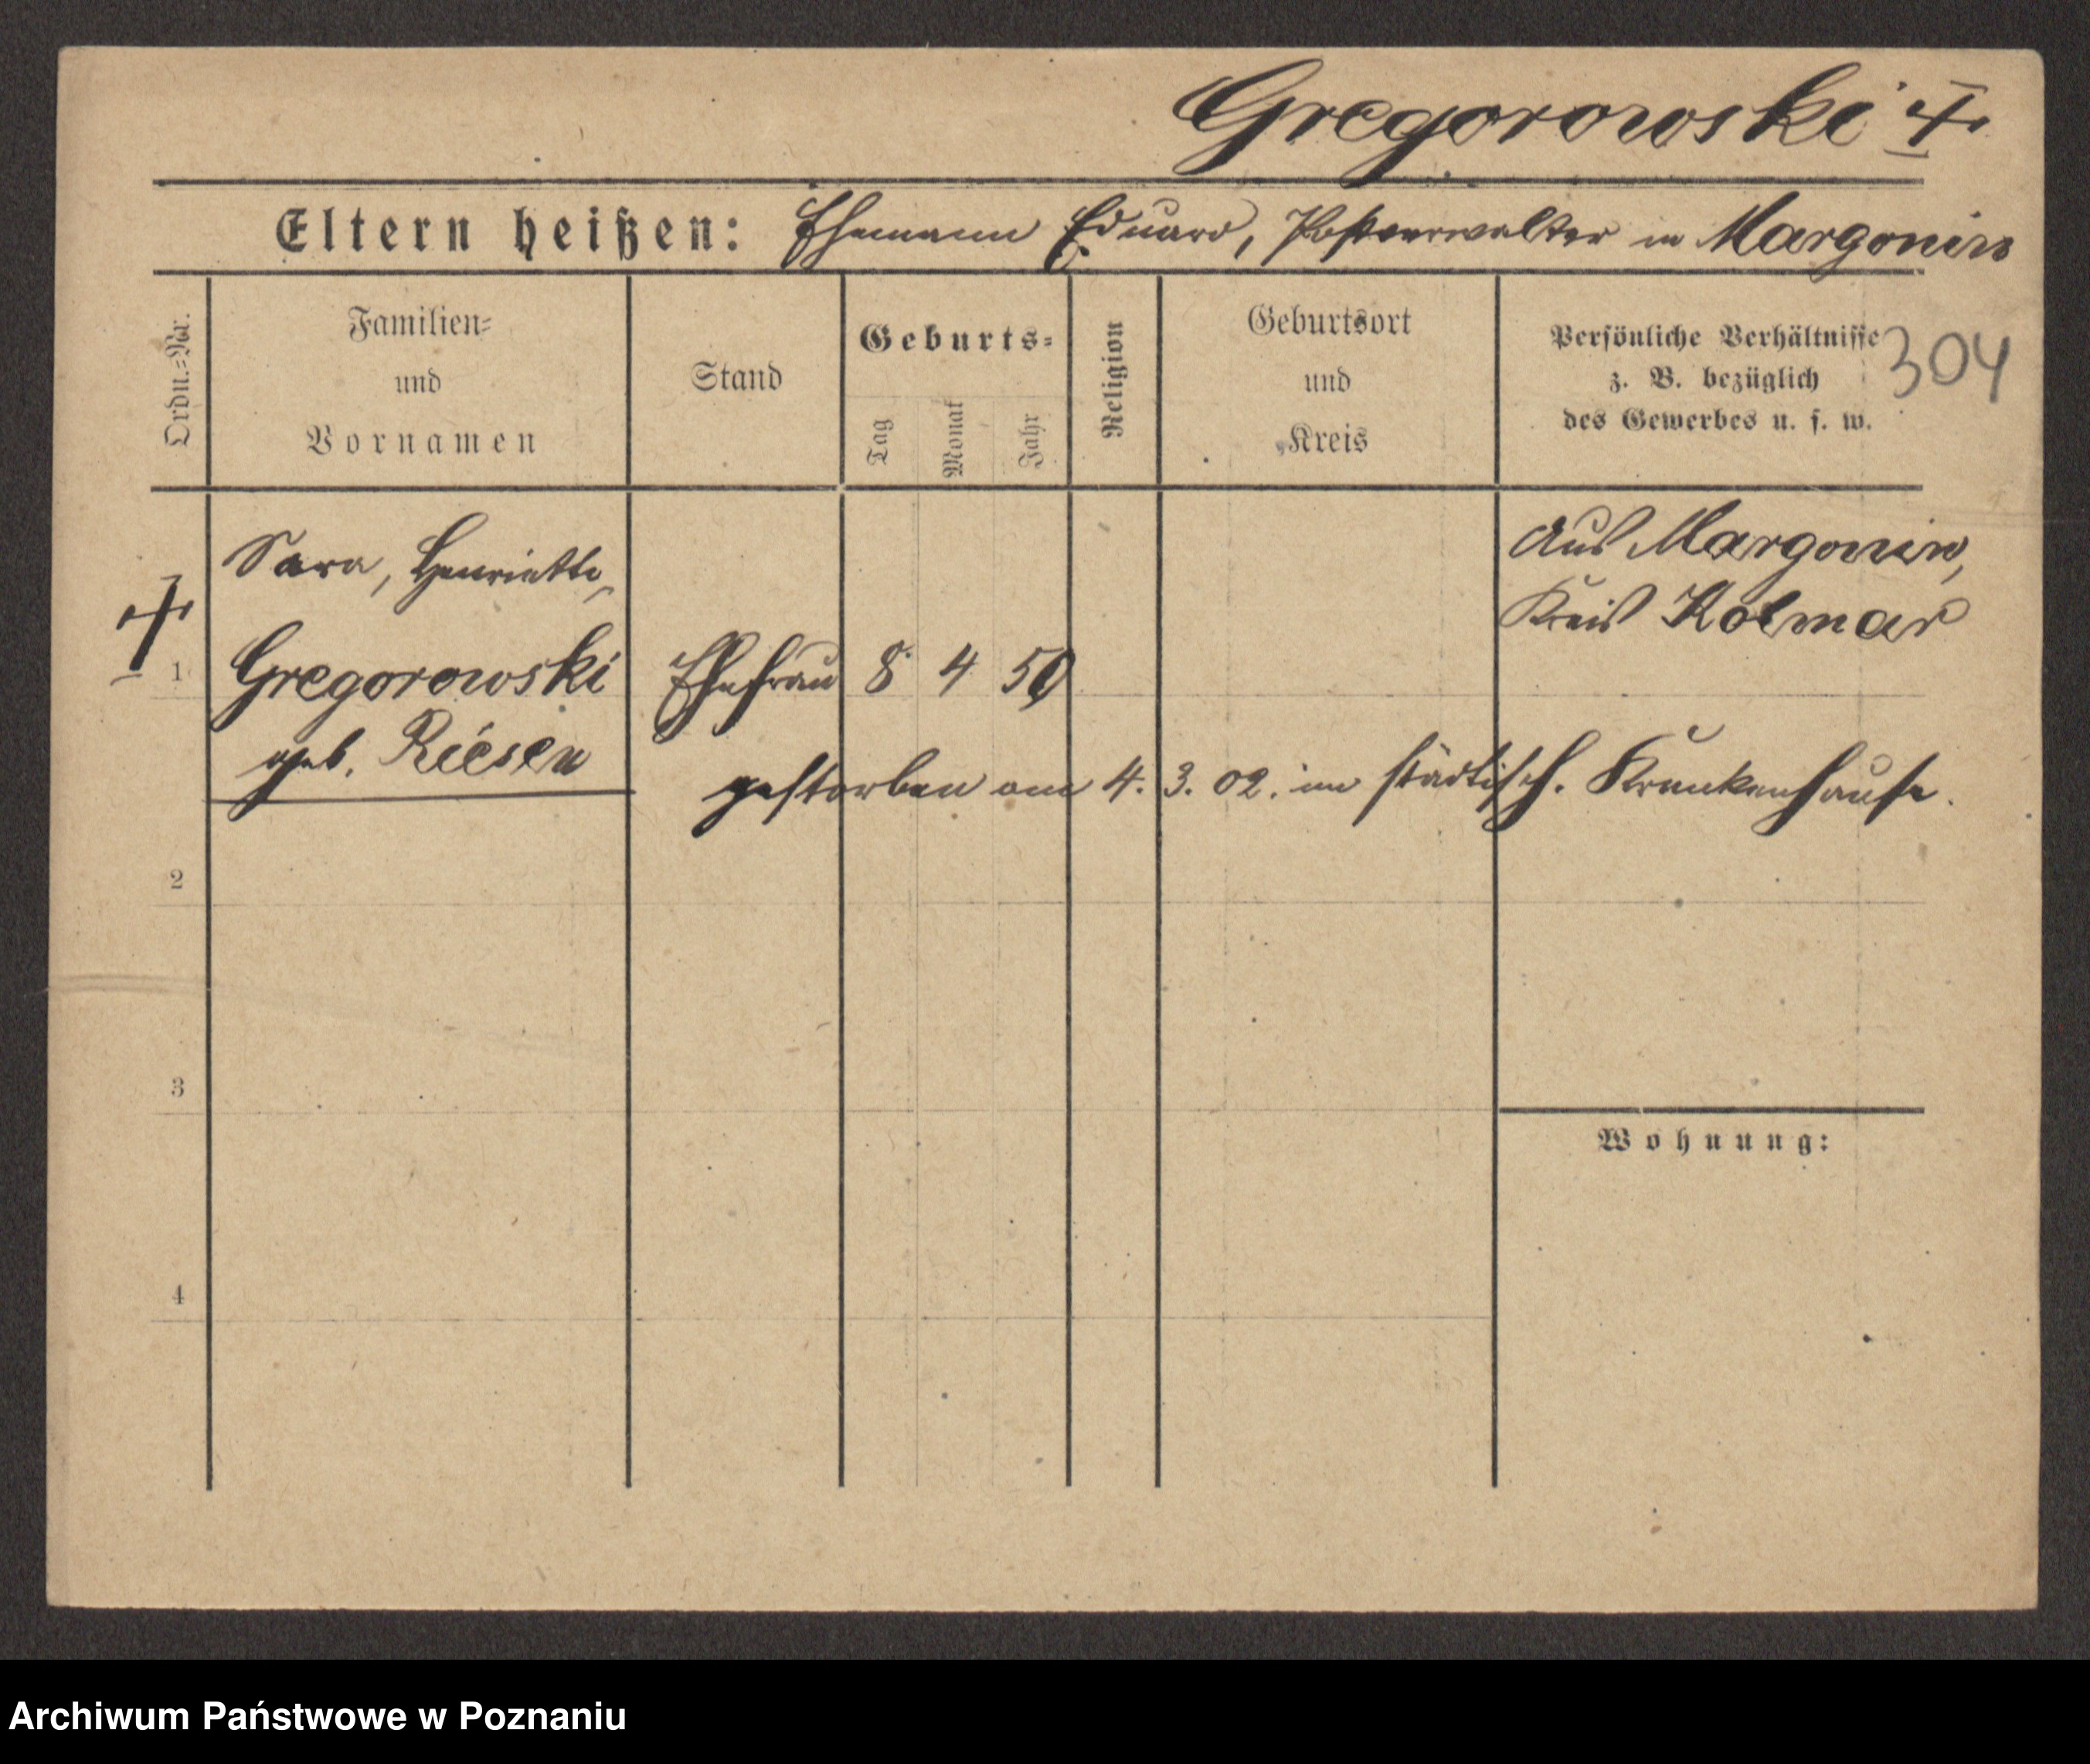 Gregorowski †
Eltern heißen: Ehemann Eduard, Postverwalter in Margonin
Ordn.=Nr.
Familien=
und
Vornamen
Stand
Geburts=
Tag
Monat
Jahr
Religion
Geburtsort
und
Kreis
Persönliche Verhältnisse
z. B. bezüglich
des Gewerbes u. s. w.
304
Sara, Henriette,
aus Margonin,
Kreis Kolmar
†
1
Gregorowski
Ehefrau 8 4 50
geb. Riesen
gestorben am 4. 3. 02. im städtisch. Krankenhause.
2
3
Wohnung:
4
Archiwum Państwowe w Poznaniu